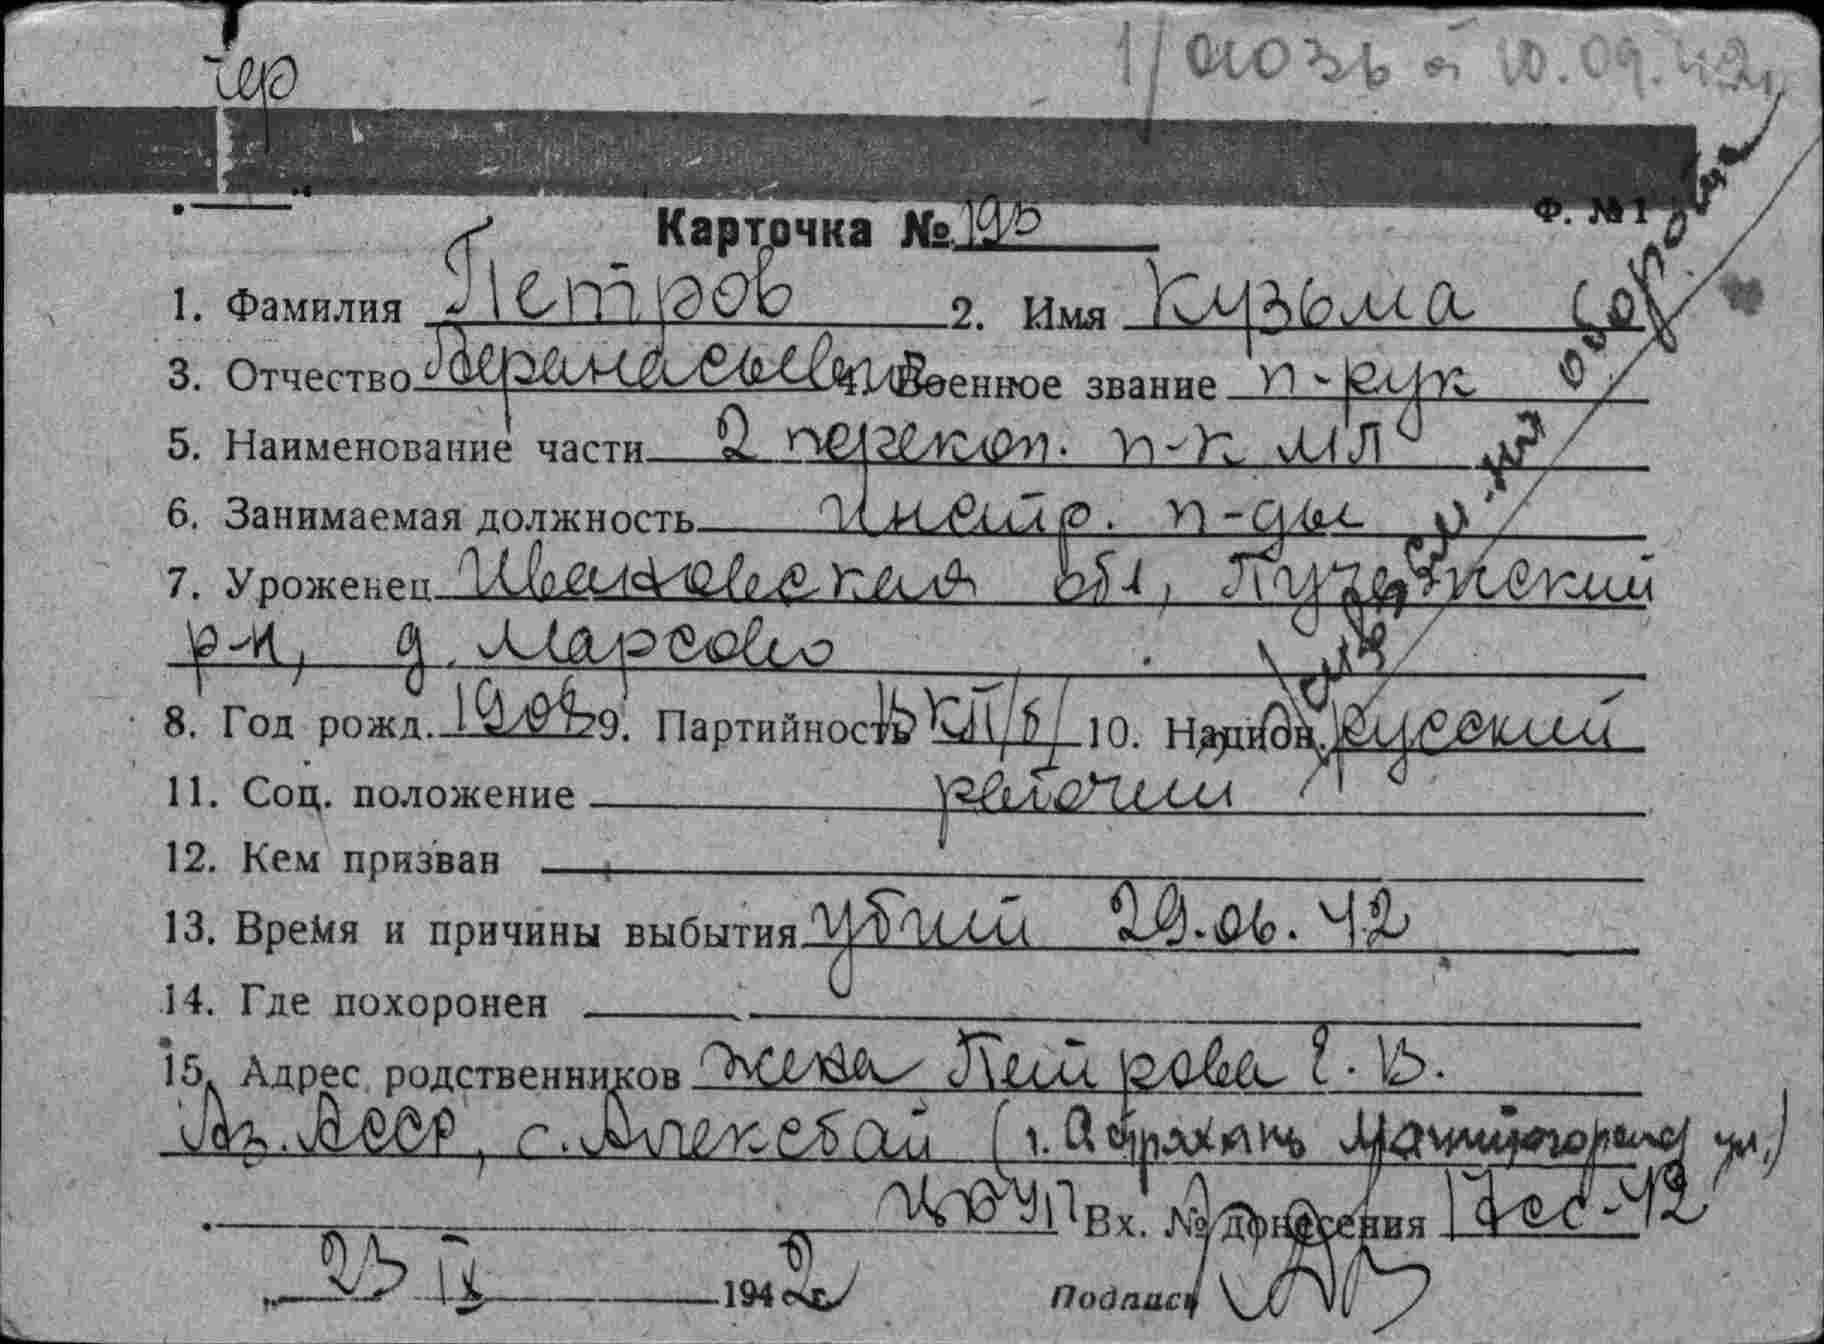 чер
1/01036 от 10.09.42г.
Ф. № 1
Карточка № 195
1. Фамилия Петров 2. Имя Кузьма
3. Отчество 4. Военное звание п-рук
5. Наименование части 2 перекоп. п-к МП
6. Занимаемая должность Инстр. п-ды
7. Уроженец Ивановская обл, Пучежский
р-н, д. Марсово
8. Год рожд. 1908 9. Партийность ВКП/б/ 10. Национ. русский
11. Соц. положение рабочий
12. Кем призван
13. Время и причины выбытия убит 29.06.42
14. Где похоронен
15. Адрес родственников жена Петрова Е. В.
Аз. АССР, с. (г. Астрахань Магнитогорская ул.)
Вх. № донесения 17сс-42
23 IX 1942 г. Подпись